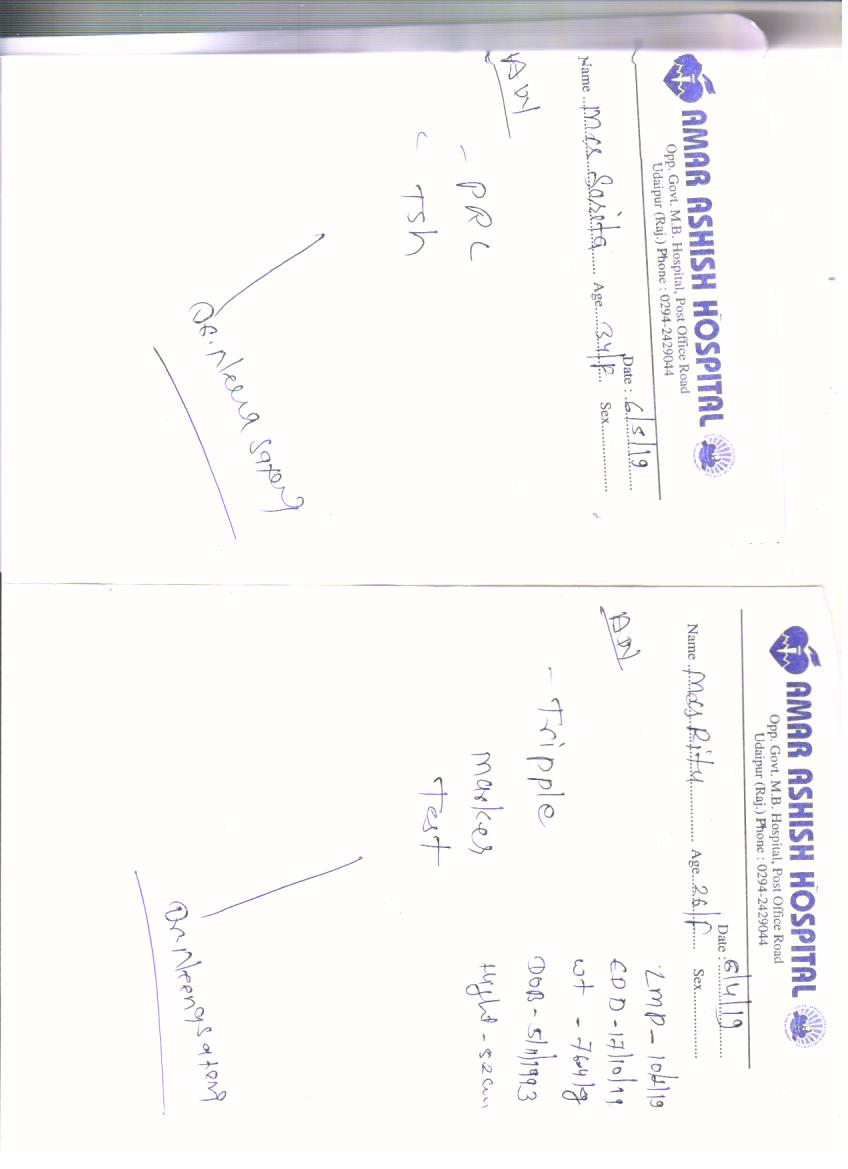 AMAR ASHISH HOSPITAL
Opp. Govt. M.B. Hospital, Post Office Road
Udaipur (Raj.) Phone : 0294-2429044
Date : 6/5/19
Name Mrs Sarita Age 34/F Sex
Adv
- PRL
- TSh
Dr. Neena
AMAR ASHISH HOSPITAL
Opp. Govt. M.B. Hospital, Post Office Road
Udaipur (Raj.) Phone : 0294-2429044
Date : 6/4/19
Name Mrs Ritu Age 26/F Sex
LMP -
Adv
EDD - 17/10/19
wt -
- Tripple
DOB -
marker
Hight - 52cm
Test
Dr. Neena